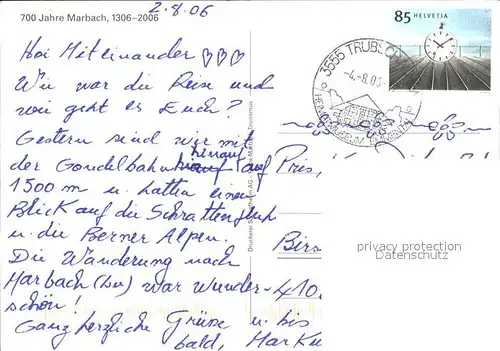 700 Jahre Marbach, 1306–2006
2.8.06
Hoi Miteinander
Wie war die Reise und
wie geht es Euch?
Gestern sind wir mit
der Gondelbahn hinauf auf
1500 m u. hatten einen
Blick auf die Schrattenfluh
u. die Berner Alpen.
Die Wanderung nach
Marbach (Lu) war wunder-
schön!
Ganz herzliche Grüsse u. bis
bald, Marku
85 HELVETIA
3555 TRUBSCH
-4.-8.06
HEIMATMUSEUM
Druckerei
Pris,
Birs
410.
privacy protection
Datenschutz